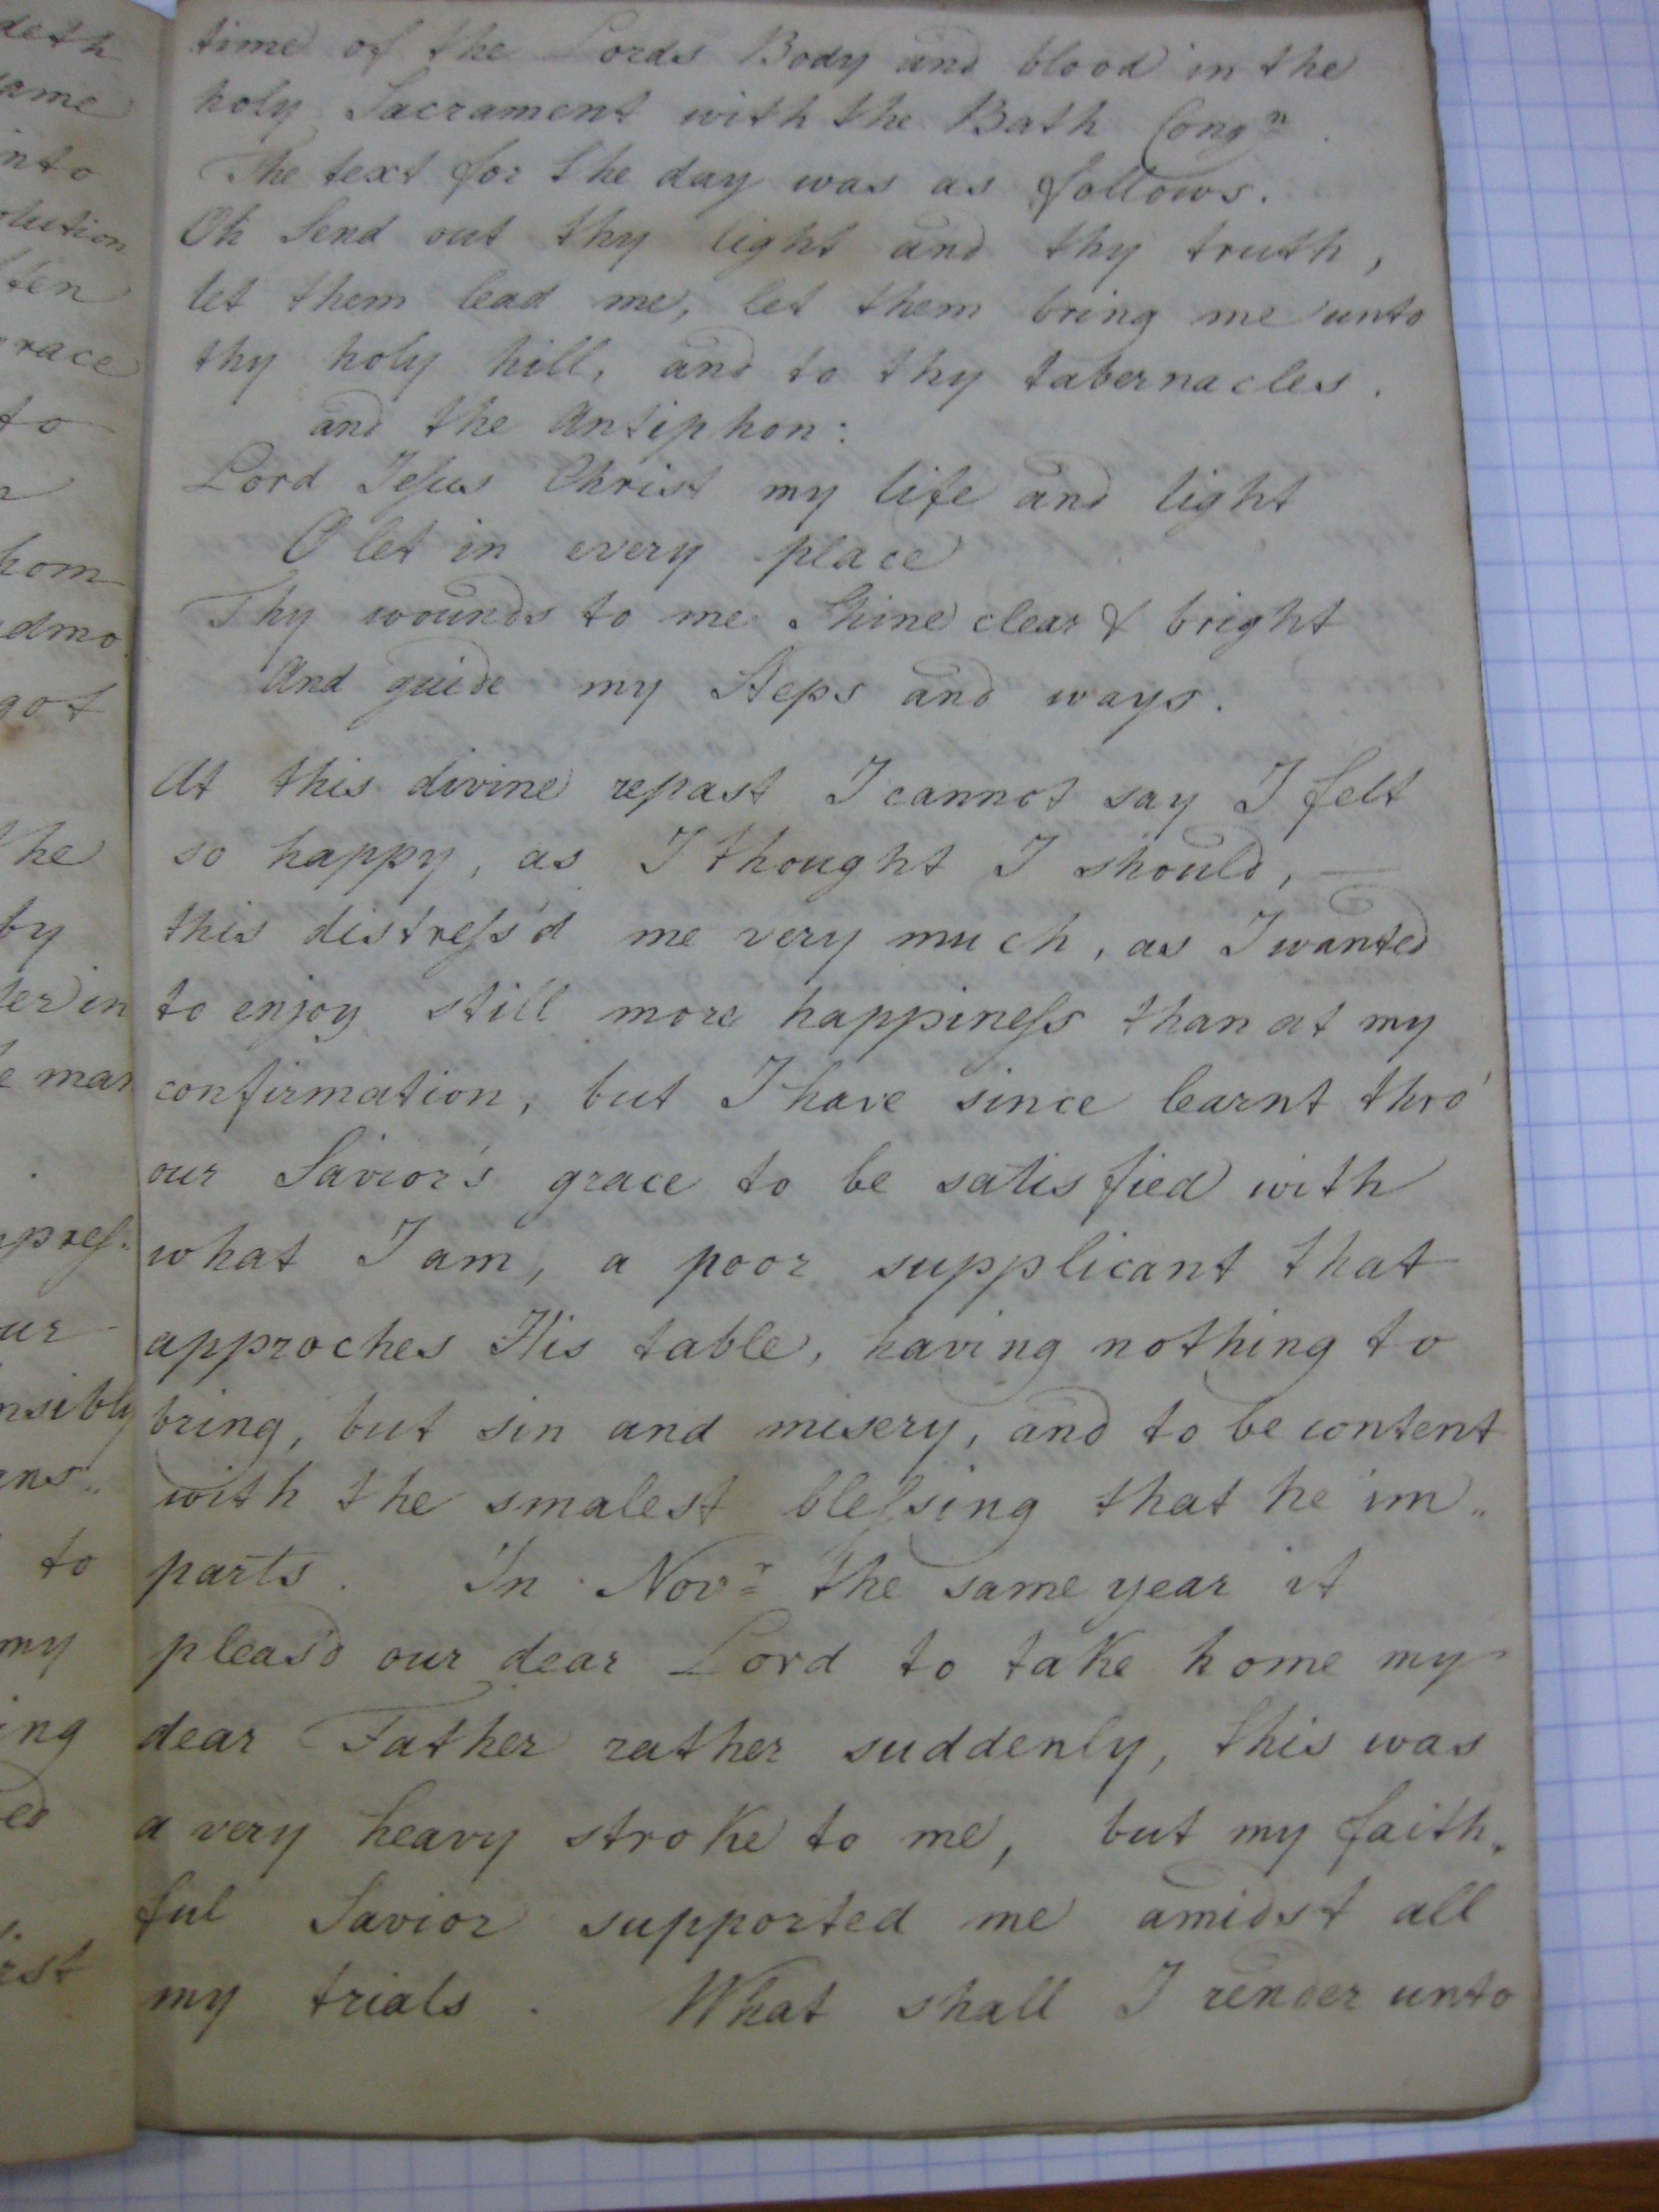 time of the Lords Body and blood in the
holy Sacrament with the Bath Congn.
The text for the day was as follows.
Oh Send out thy light and thy truth,
let them lead me, let them bring me unto
thy holy hill, and to thy tabernacles.
and the Antiphon:
Lord Jesus Christ my life and light
O let in every place
Thy wounds to me Shine clear & bright
And guide my Steps and ways.
At this divine repast I cannot say I felt
so happy, as I thought I should, —
this distress'd me very much, as I wanted
to enjoy still more happiness than at my
confirmation, but I have since learnt thro'
our Savior's grace to be satisfied with
what I am, a poor supplicant that
approches His table, having nothing to
bring, but sin and misery, and to be content
with the smalest blessing that he im„
parts. In Novr the same year it
pleas'd our dear Lord to take home my
dear Father rather suddenly, this was
a very heavy stroke to me, but my faith„
ful Savior supported me amidst all
my trials. What shall I render unto